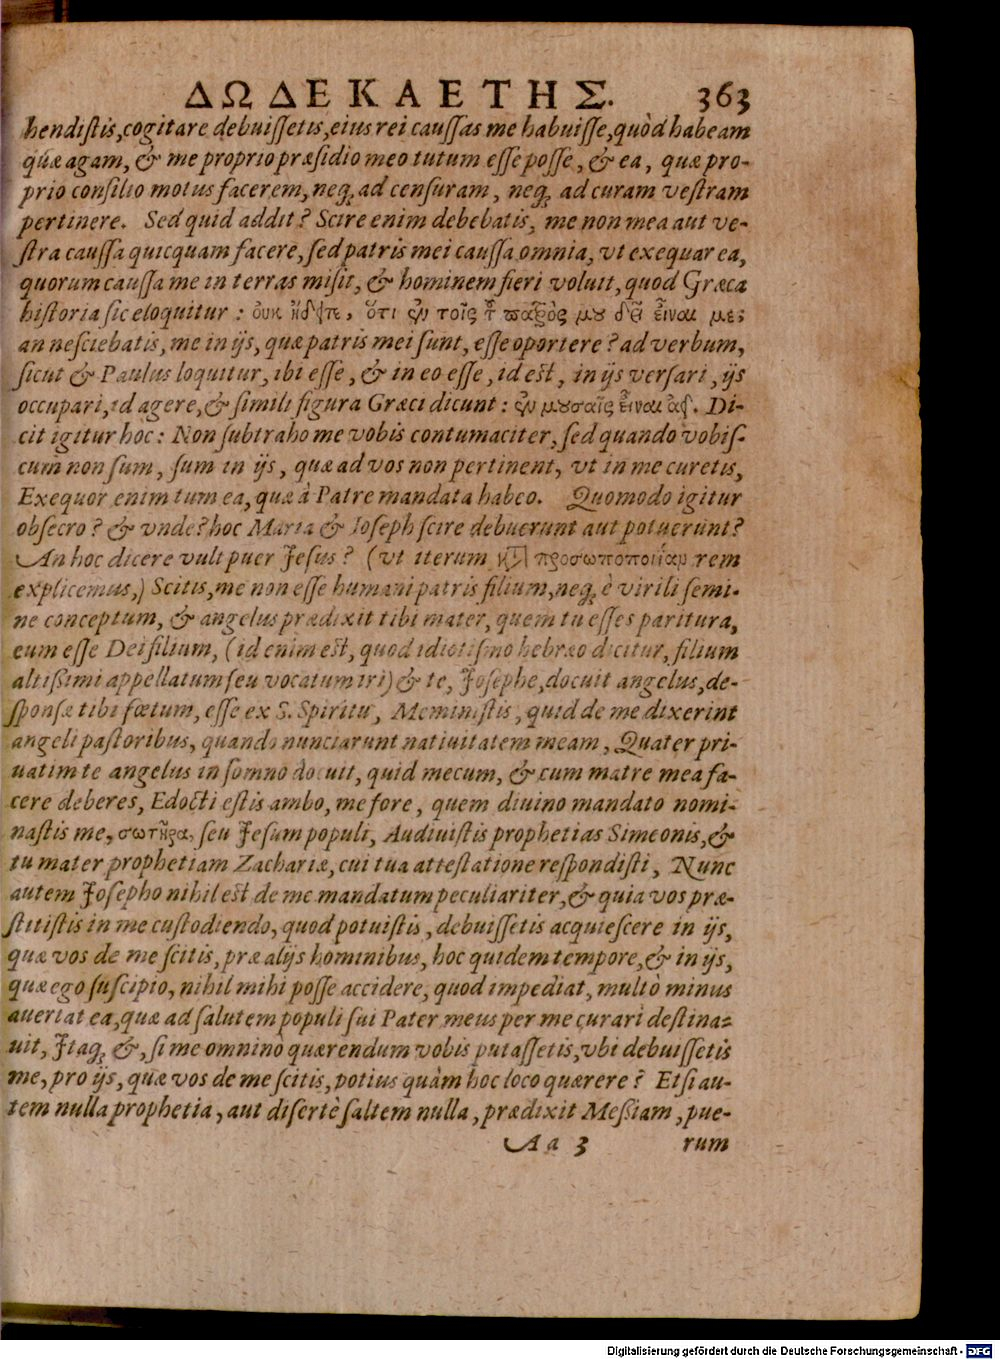 ΔΩΔΕΚΑΕΤΗΣ. 363
hendiſtis, cogitare debuiſſetis, eius rei cauſſas me habuiſſe, quòd habeam
quæ agam, & me proprio præſidio meo tutum eſſe poſſe, & ea, quæ pro-
prio conſilio motus facerem, neq; ad cenſuram, neq; ad curam veſtram
pertinere. Sed quid addit? Scire enim debebatis, me non mea aut ve-
ſtra cauſſa quicquam facere, ſed patris mei cauſſa omnia, vt exequar ea,
quorum cauſſa me in terras miſit, & hominem fieri voluit, quod Græca
hiſtoria ſic eloquitur: οὐκ ᾔδητε, ὅτι ἐν τοῖς τοῦ πατρὸς μου δεῖ εἶναι με;
an neſciebatis, me in ijs, quæ patris mei ſunt, eſſe oportere? ad verbum,
ſicut & Paulus loquitur, ibi eſſe, & in eo eſſe, id eſt, in ijs verſari, ijs
occupari, id agere, & ſimili figura Græci dicunt: ἐν μούσαις εἶναι . Di-
cit igitur hoc: Non ſubtraho me vobis contumaciter, ſed quando vobiſ-
cum non ſum, ſum in ijs, quæ ad vos non pertinent, vt in me curetis,
Exequor enim tum ea, quæ à Patre mandata habeo. Quomodo igitur
obſecro? & vnde? hoc Maria & Ioſeph ſcire debuerunt aut potuerunt?
An hoc dicere vult puer Jeſus? (vt iterum κατὰ προσωποποιΐαμ rem
explicemus,) Scitis, me non eſſe humani patris filium, neq; è virili ſemi-
ne conceptum, & angelus prædixit tibi mater, quem tu eſſes paritura,
eum eſſe Dei filium, (id enim eſt, quod idiotiſmo hebræo dicitur, filium
altißimi appellatum ſeu vocatum iri) & te, Joſephe, docuit angelus, de-
ſponſæ tibi fœtum, eſſe ex S. Spiritu, Meminiſtis, quid de me dixerint
angeli paſtoribus, quando nunciarunt natiuitatem meam, Quater pri-
uatim te angelus in ſomno docuit, quid mecum, & cum matre mea fa-
cere deberes, Edocti eſtis ambo, me fore, quem diuino mandato nomi-
naſtis me, σωτῆρα, ſeu Jeſum populi, Audiuiſtis prophetias Simeonis, &
tu mater prophetiam Zachariæ, cui tua atteſtatione reſpondiſti, Nunc
autem Joſepho nihil eſt de me mandatum peculiariter, & quia vos præ-
ſtitiſtis in me cuſtodiendo, quod potuiſtis, debuiſſetis acquieſcere in ijs,
quæ vos de me ſcitis, præ alijs hominibus, hoc quidem tempore, & in ijs,
quæ ego ſuſcipio, nihil mihi poſſe accidere, quod impediat, multò minus
auertat ea, quæ ad ſalutem populi ſui Pater meus per me curari deſtina-
uit, Itaq; &, ſi me omninò quærendum vobis putaſſetis, vbi debuiſſetis
me, pro ijs, quæ vos de me ſcitis, potius quàm hoc loco quærere? Etſi au-
tem nulla prophetia, aut diſertè ſaltem nulla, prædixit Meßiam, pue-
Aa 3 rum
Digitalisierung gefördert durch die Deutsche Forschungsgemeinschaft - DFG